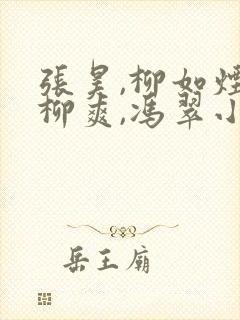 張昊,柳如煙
柳爽,馮翠小
岳王廟